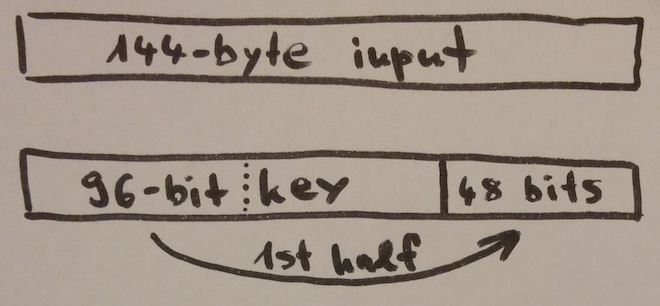 144-byte input
96-bit key
48 bits
1st half